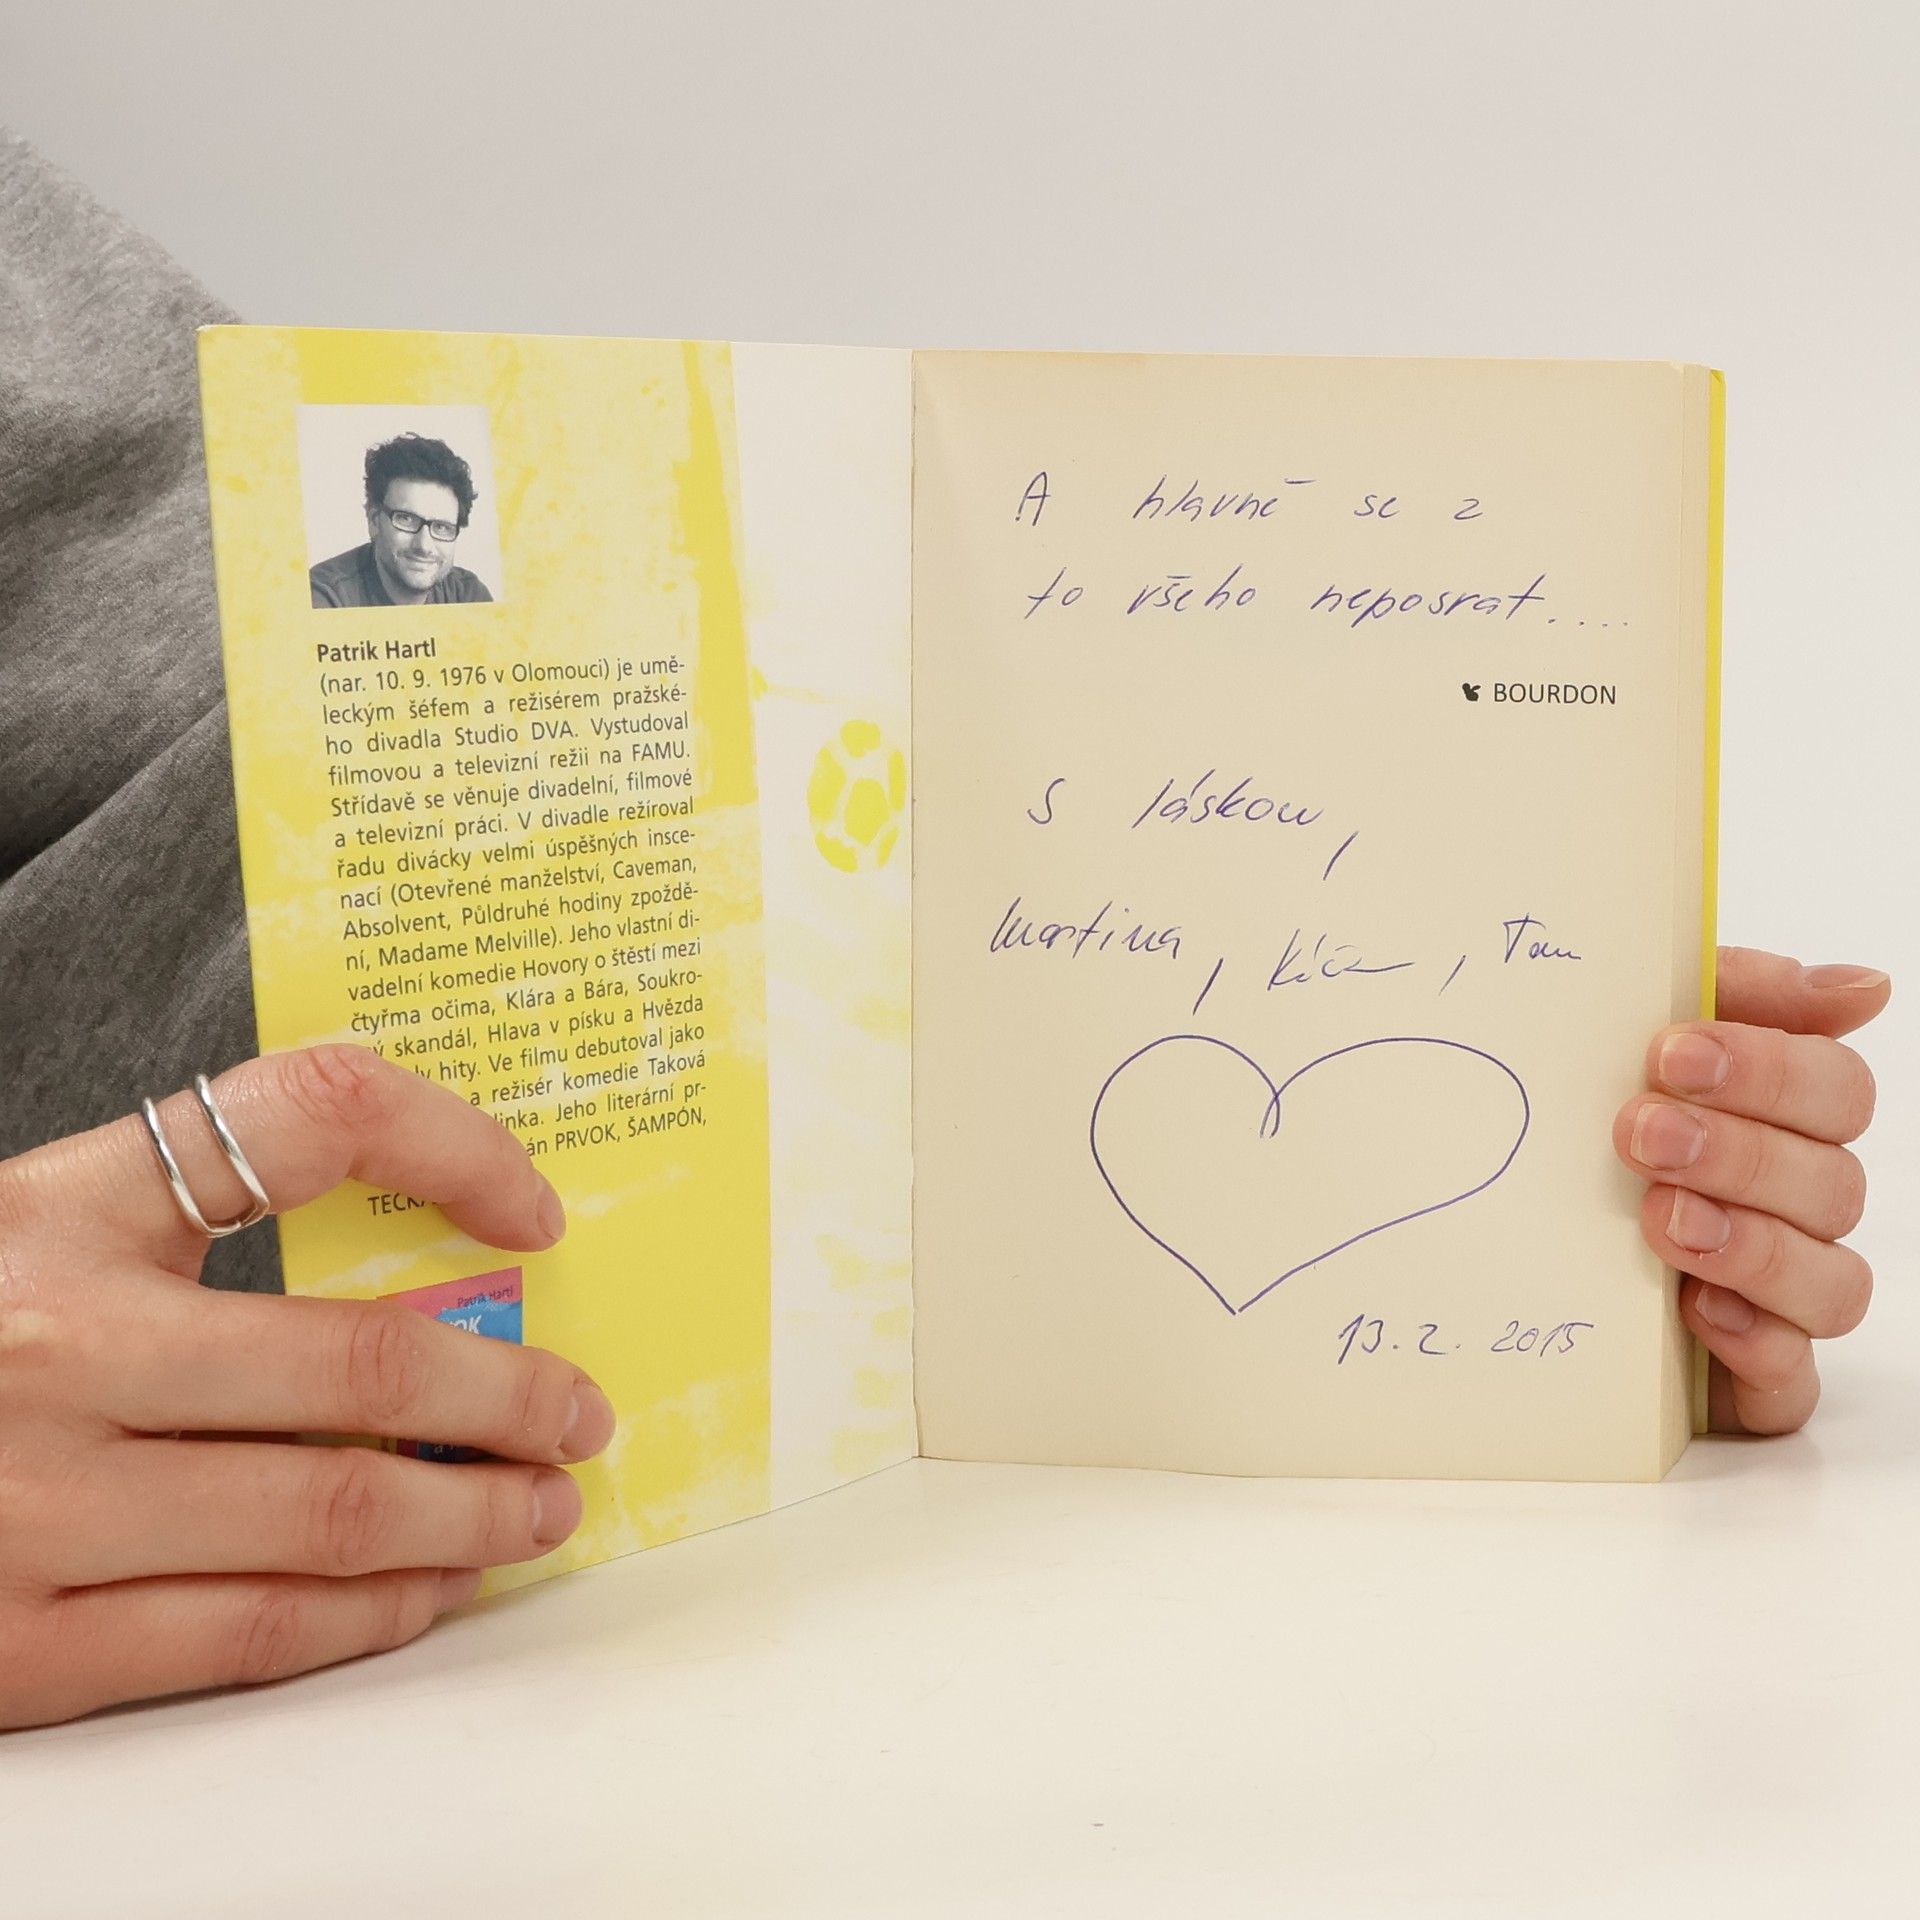 Patrik Hartl
(nar. 10. 9. 1976 v Olomouci) je umě-
leckým šéfem a režisérem pražské-
ho divadla Studio DVA. Vystudoval
filmovou a televizní režii na FAMU.
Střídavě se věnuje divadelní, filmové
a televizní práci. V divadle režíroval
řadu divácky velmi úspěšných insce-
nací (Otevřené manželství, Caveman,
Absolvent, Půldruhé hodiny zpoždě-
ní, Madame Melville). Jeho vlastní di-
vadelní komedie Hovory o štěstí mezi
čtyřma očima, Klára a Bára, Soukro-
ý skandál, Hlava v písku a Hvězda
y hity. Ve filmu debutoval jako
a režisér komedie Taková
linka. Jeho literární pr-
án PRVOK, ŠAMPÓN,
TEČKA
Patrik Hartl
OK
A hlavně se z
to všeho neposrat....
BOURDON
S láskou,
Martina, , Tom
13. 2. 2015